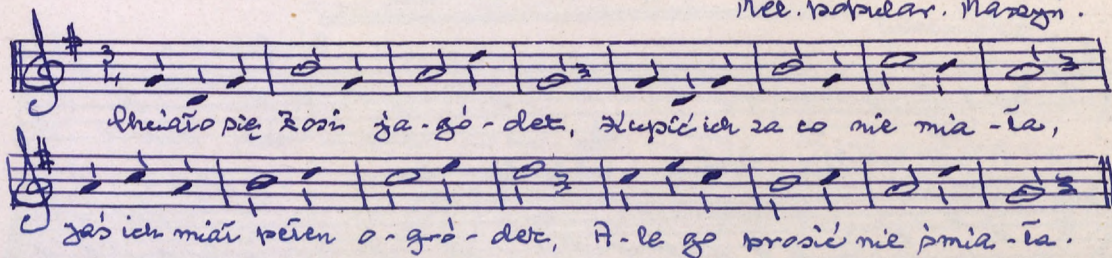 Mel. popular. Mazeyn.
3/4
Chciało się Zosi ja-gó-dek, Kupić ich za co nie mia-ła,
Jaś ich miał pełen o-gró-dek, A-le go prosić nie śmia-ła.